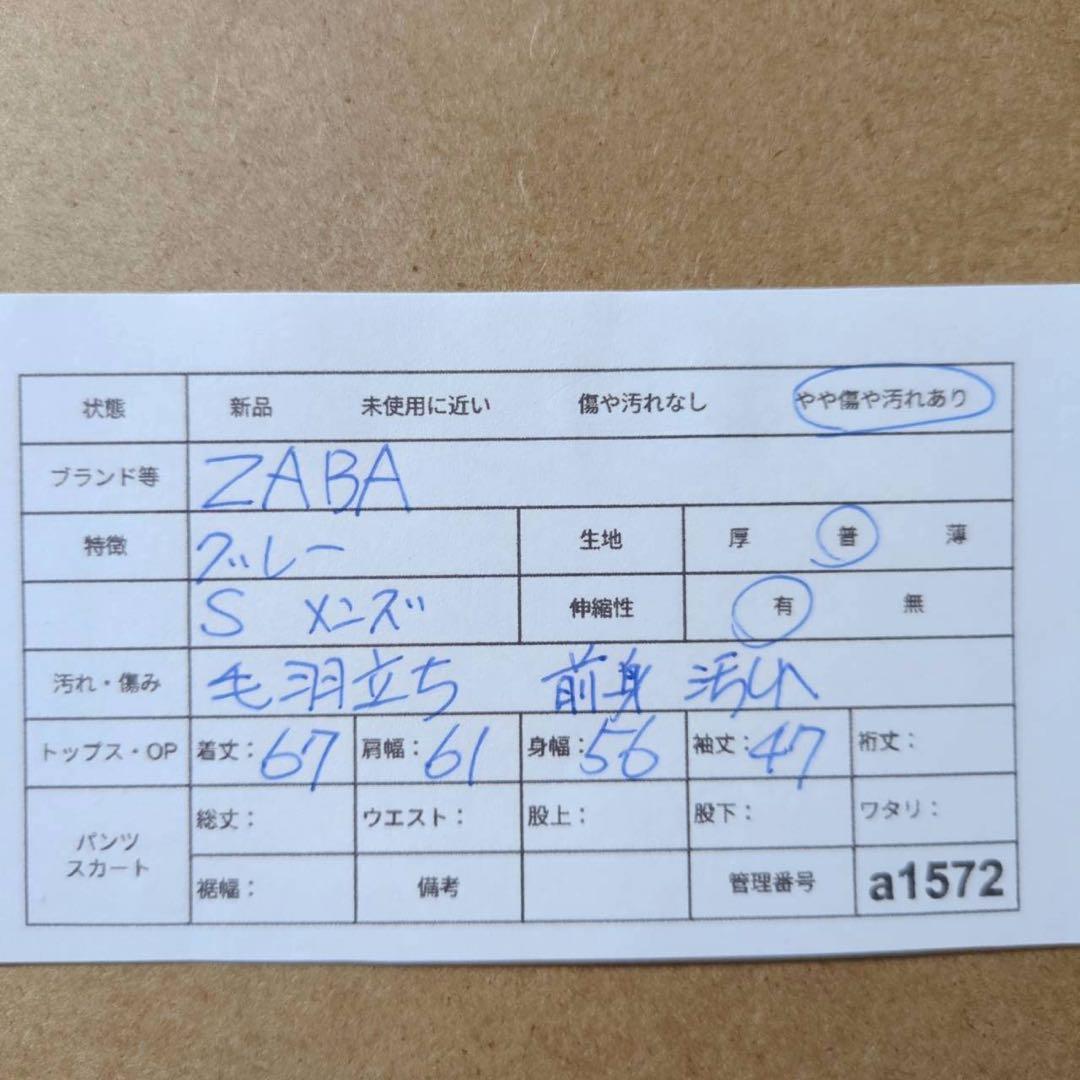 状態 新品 未使用に近い 傷や汚れなし やや傷や汚れあり
ブランド等 ZABA
特徴 グレー 生地 厚 普 薄
S メンズ 伸縮性 有 無
汚れ・傷み 毛羽立ち 前身 汚れ
トップス・OP 着丈：67 肩幅：61 身幅：56 袖丈：47 裄丈：
パンツ スカート 総丈： ウエスト： 股上： 股下： ワタリ：
裾幅： 備考 管理番号 a1572